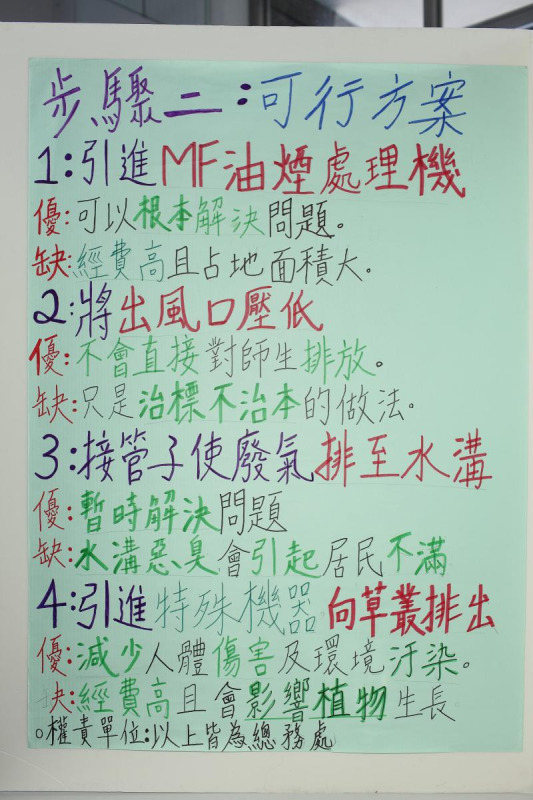 步驟二:可行方案
1:引進MF油煙處理機
優:可以根本解決問題。
缺:經費高且占地面積大。
2:將出風口壓低
優:不會直接對師生排放。
缺:只是治標不治本的做法。
3:接管子使廢氣排至水溝
優:暫時解決問題
缺:水溝惡臭會引起居民不滿
4:引進特殊機器向草叢排出
優:減少人體傷害及環境汙染。
缺:經費高且會影響植物生長
○權責單位:以上皆為總務處